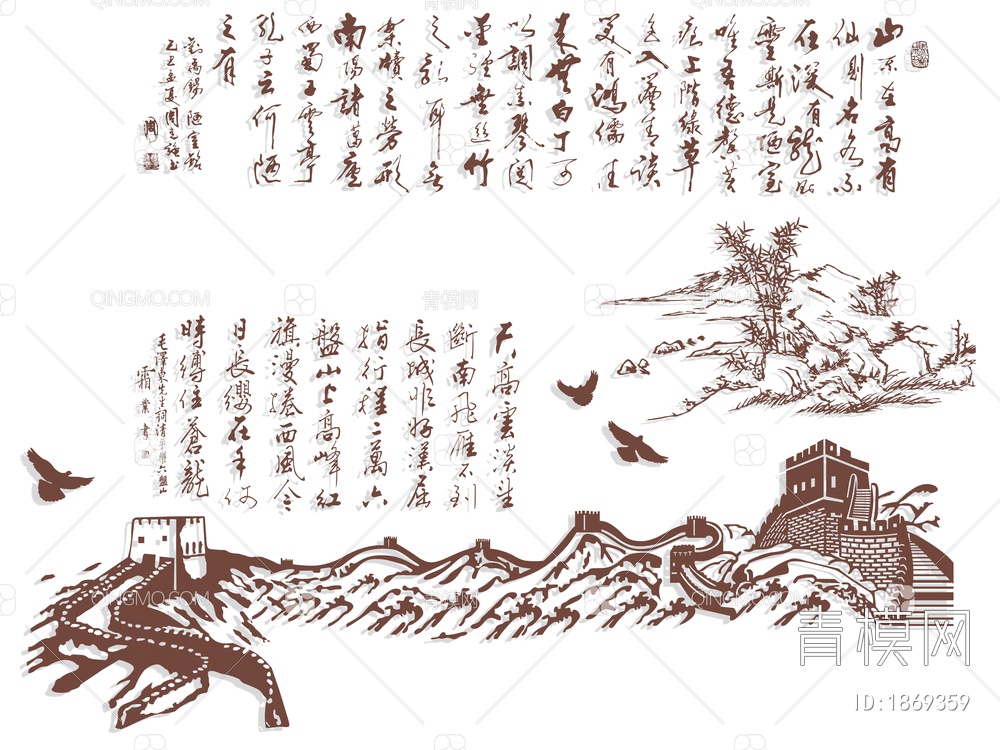 山不在高有
仙則名水不
在深有龍則
靈斯是陋室
唯吾德馨苔
痕上階綠草
色入簾青談
笑有鴻儒往
來無白丁可
以調素琴閱
金經無絲竹
之亂耳無
案牘之勞形
南陽諸葛廬
西蜀子雲亭
孔子云何陋
之有
劉禹錫陋室銘
天高雲淡望
斷南飛雁不到
長城非好漢屈
指行程二萬六
盤山上高峰紅
旗漫捲西風今
日長纓在手何
時縛住蒼龍
毛澤東主詞清平樂六盤山
霜葉書
青模网
QINGMO.COM
青模网
ID:1869359